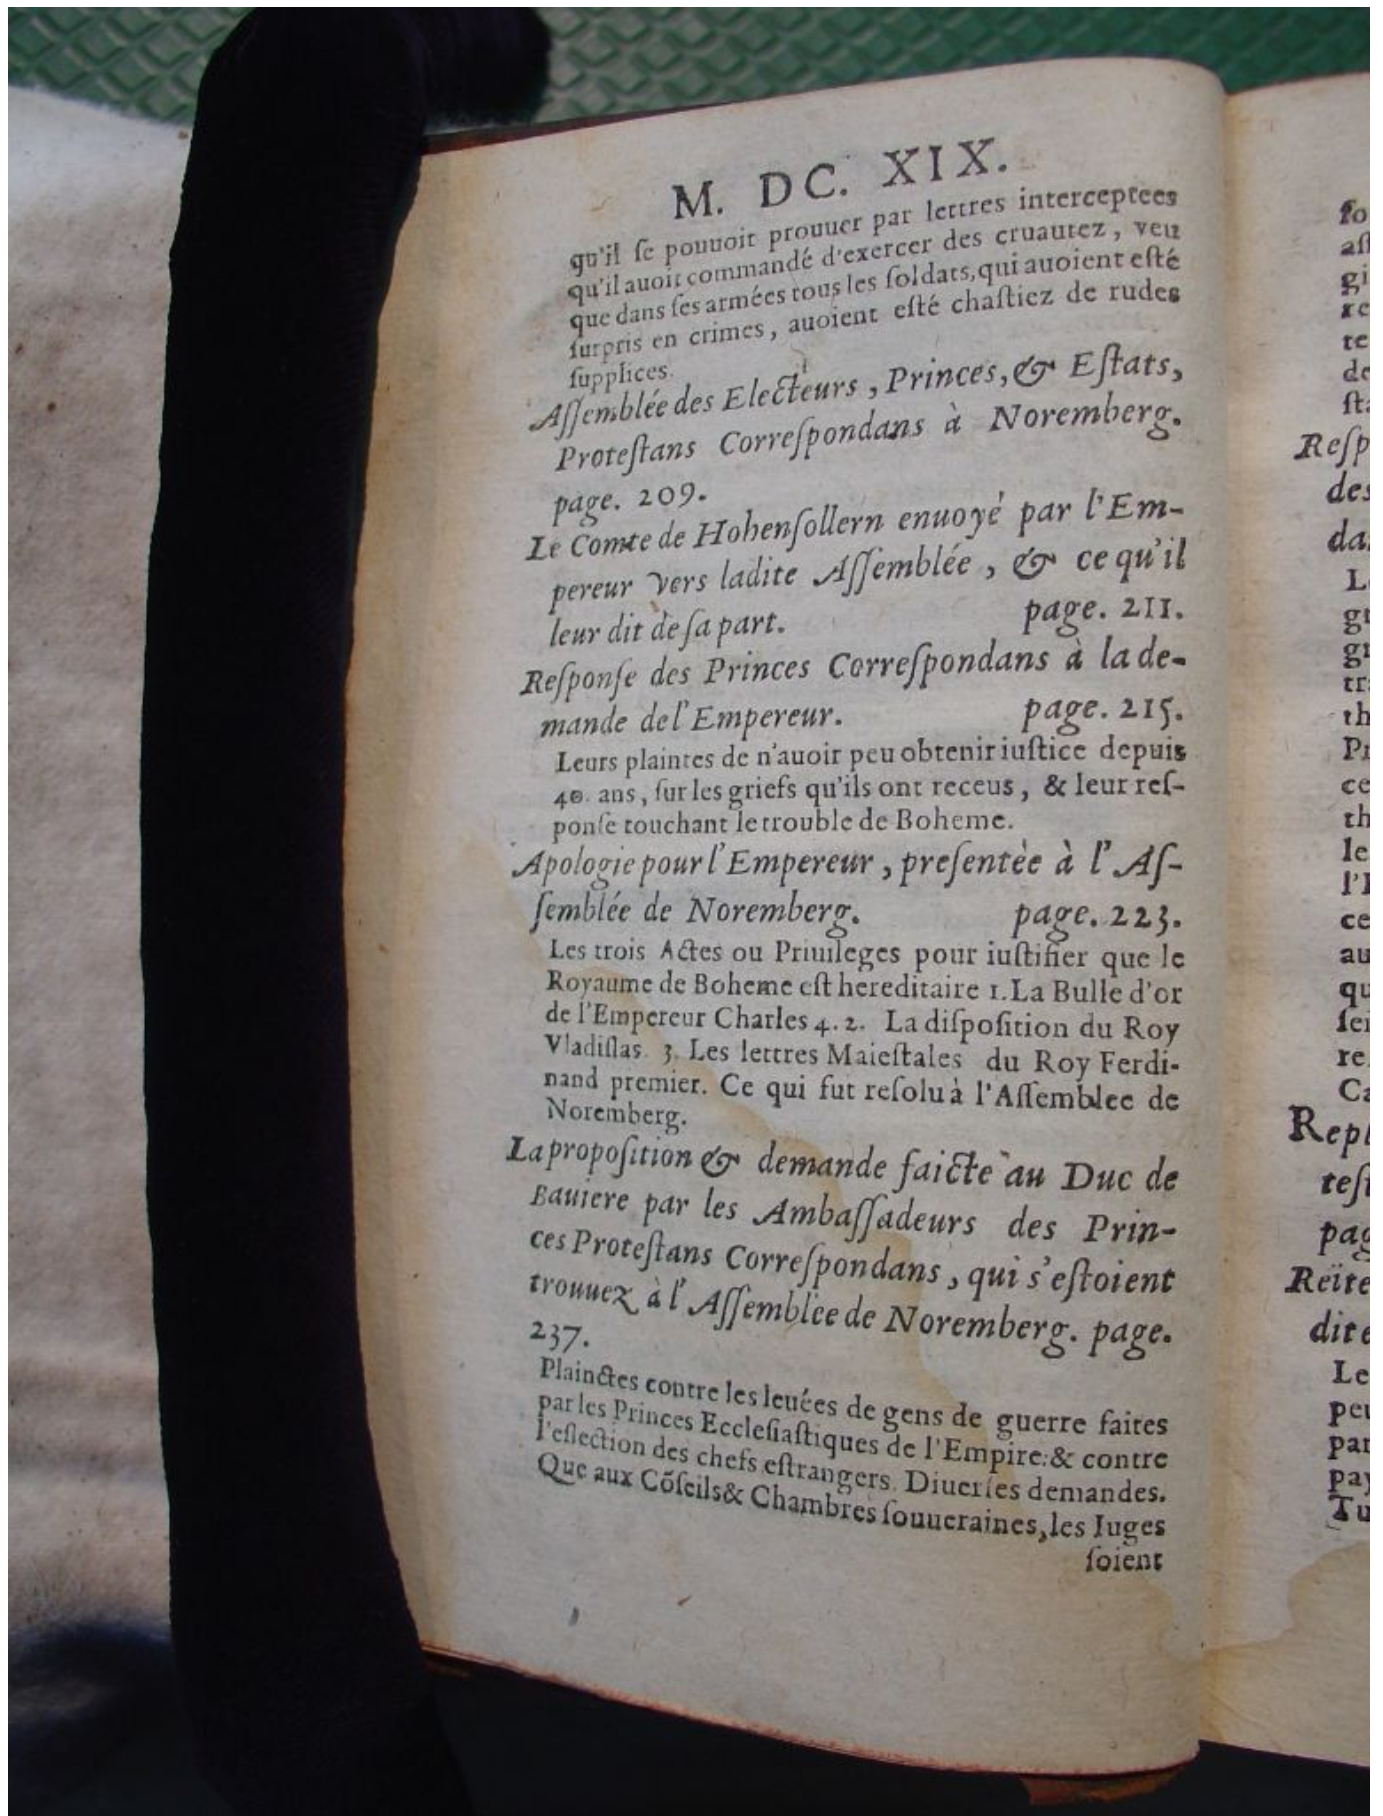 M. DC. XIX.
qu'il ſe pouuoit prouuer par lettres interceptees
qu'il auoit commandé d'exercer des cruautez, veu
que dans ſes armées tous les ſoldats, qui auoient eſté
ſurpris en crimes, auoient eſté chaſtiez de rudes
ſupplices.
Aſſemblée des Electeurs, Princes, & Eſtats,
Proteſtans Correſpondans à Noremberg.
page. 209.
Le Comte de Hohenſollern enuoyé par l'Em-
pereur vers ladite Aſſemblée, & ce qu'il
leur dit de ſa part. page. 211.
Reſponſe des Princes Correſpondans à la de-
mande de l'Empereur. page. 215.
Leurs plaintes de n'auoir peu obtenir iuſtice depuis
40. ans, ſur les griefs qu'ils ont receus, & leur reſ-
ponſe touchant le trouble de Boheme.
Apologie pour l'Empereur, preſentèe à l'Aſ-
ſemblée de Noremberg. page. 223.
Les trois Actes ou Priuileges pour iuſtifier que le
Royaume de Boheme eſt hereditaire 1. La Bulle d'or
de l'Empereur Charles 4. 2. La diſpoſition du Roy
Vladiſlas. 3. Les lettres Maieſtales du Roy Ferdi-
nand premier. Ce qui fut reſolu à l'Aſſemblee de
Noremberg.
La propoſition & demande faicte au Duc de
Bauiere par les Ambaſſadeurs des Prin-
ces Proteſtans Correſpondans, qui s'eſtoient
trouuez à l'Aſſemblée de Noremberg. page.
237.
Plainctes contre les leuées de gens de guerre faites
par les Princes Eccleſiaſtiques de l'Empire: & contre
l'eſlection des chefs eſtrangers. Diuerſes demandes.
Que aux Cõſeils & Chambres ſouueraines, les Iuges
ſoient
ſo
aſſ
gi
re
te
de
ſta
Reſp
des
da
L
gr
gr
tr
th
Pr
ce
th
le
l'
ce
au
qu
ſei
re
Ca
Repl
teſt
pag
Reïte
dite
Le
peu
par
pay
Tu